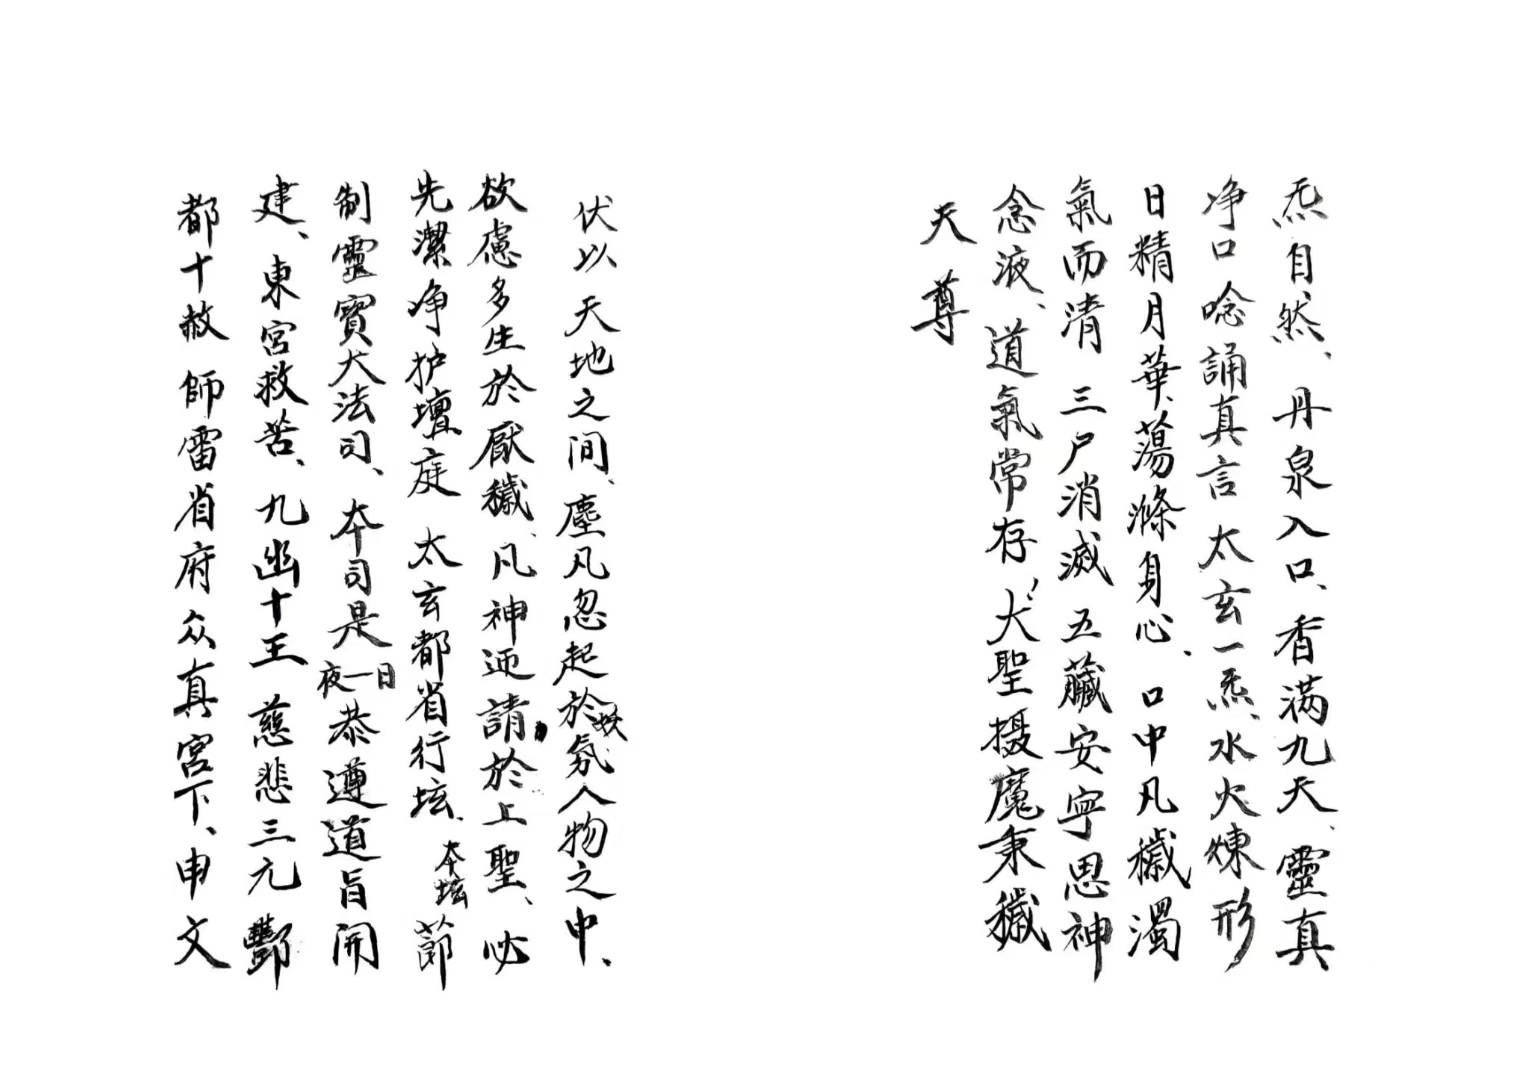 炁自然、丹泉入口、香满九天、靈真
净口唸誦真言太玄一炁、水火煉形
日精月華、蕩滌身心、口中凡穢濁
氣而清三尸消滅五藏安宁思神
念液、道氣常存、大聖摄魔秉穢
天尊
伏以天地之间、塵凡忽起於妖氛、人物之中、
欲慮多生於厭穢、凡神迊請於上聖、必
先潔净护壇庭太玄都省行坛、本坛節
制靈寶大法司、本司是一日夜恭遵道旨開
建、東宫救苦、九幽十王慈悲三元酆
都十赦師雷省府众真宫下、申文